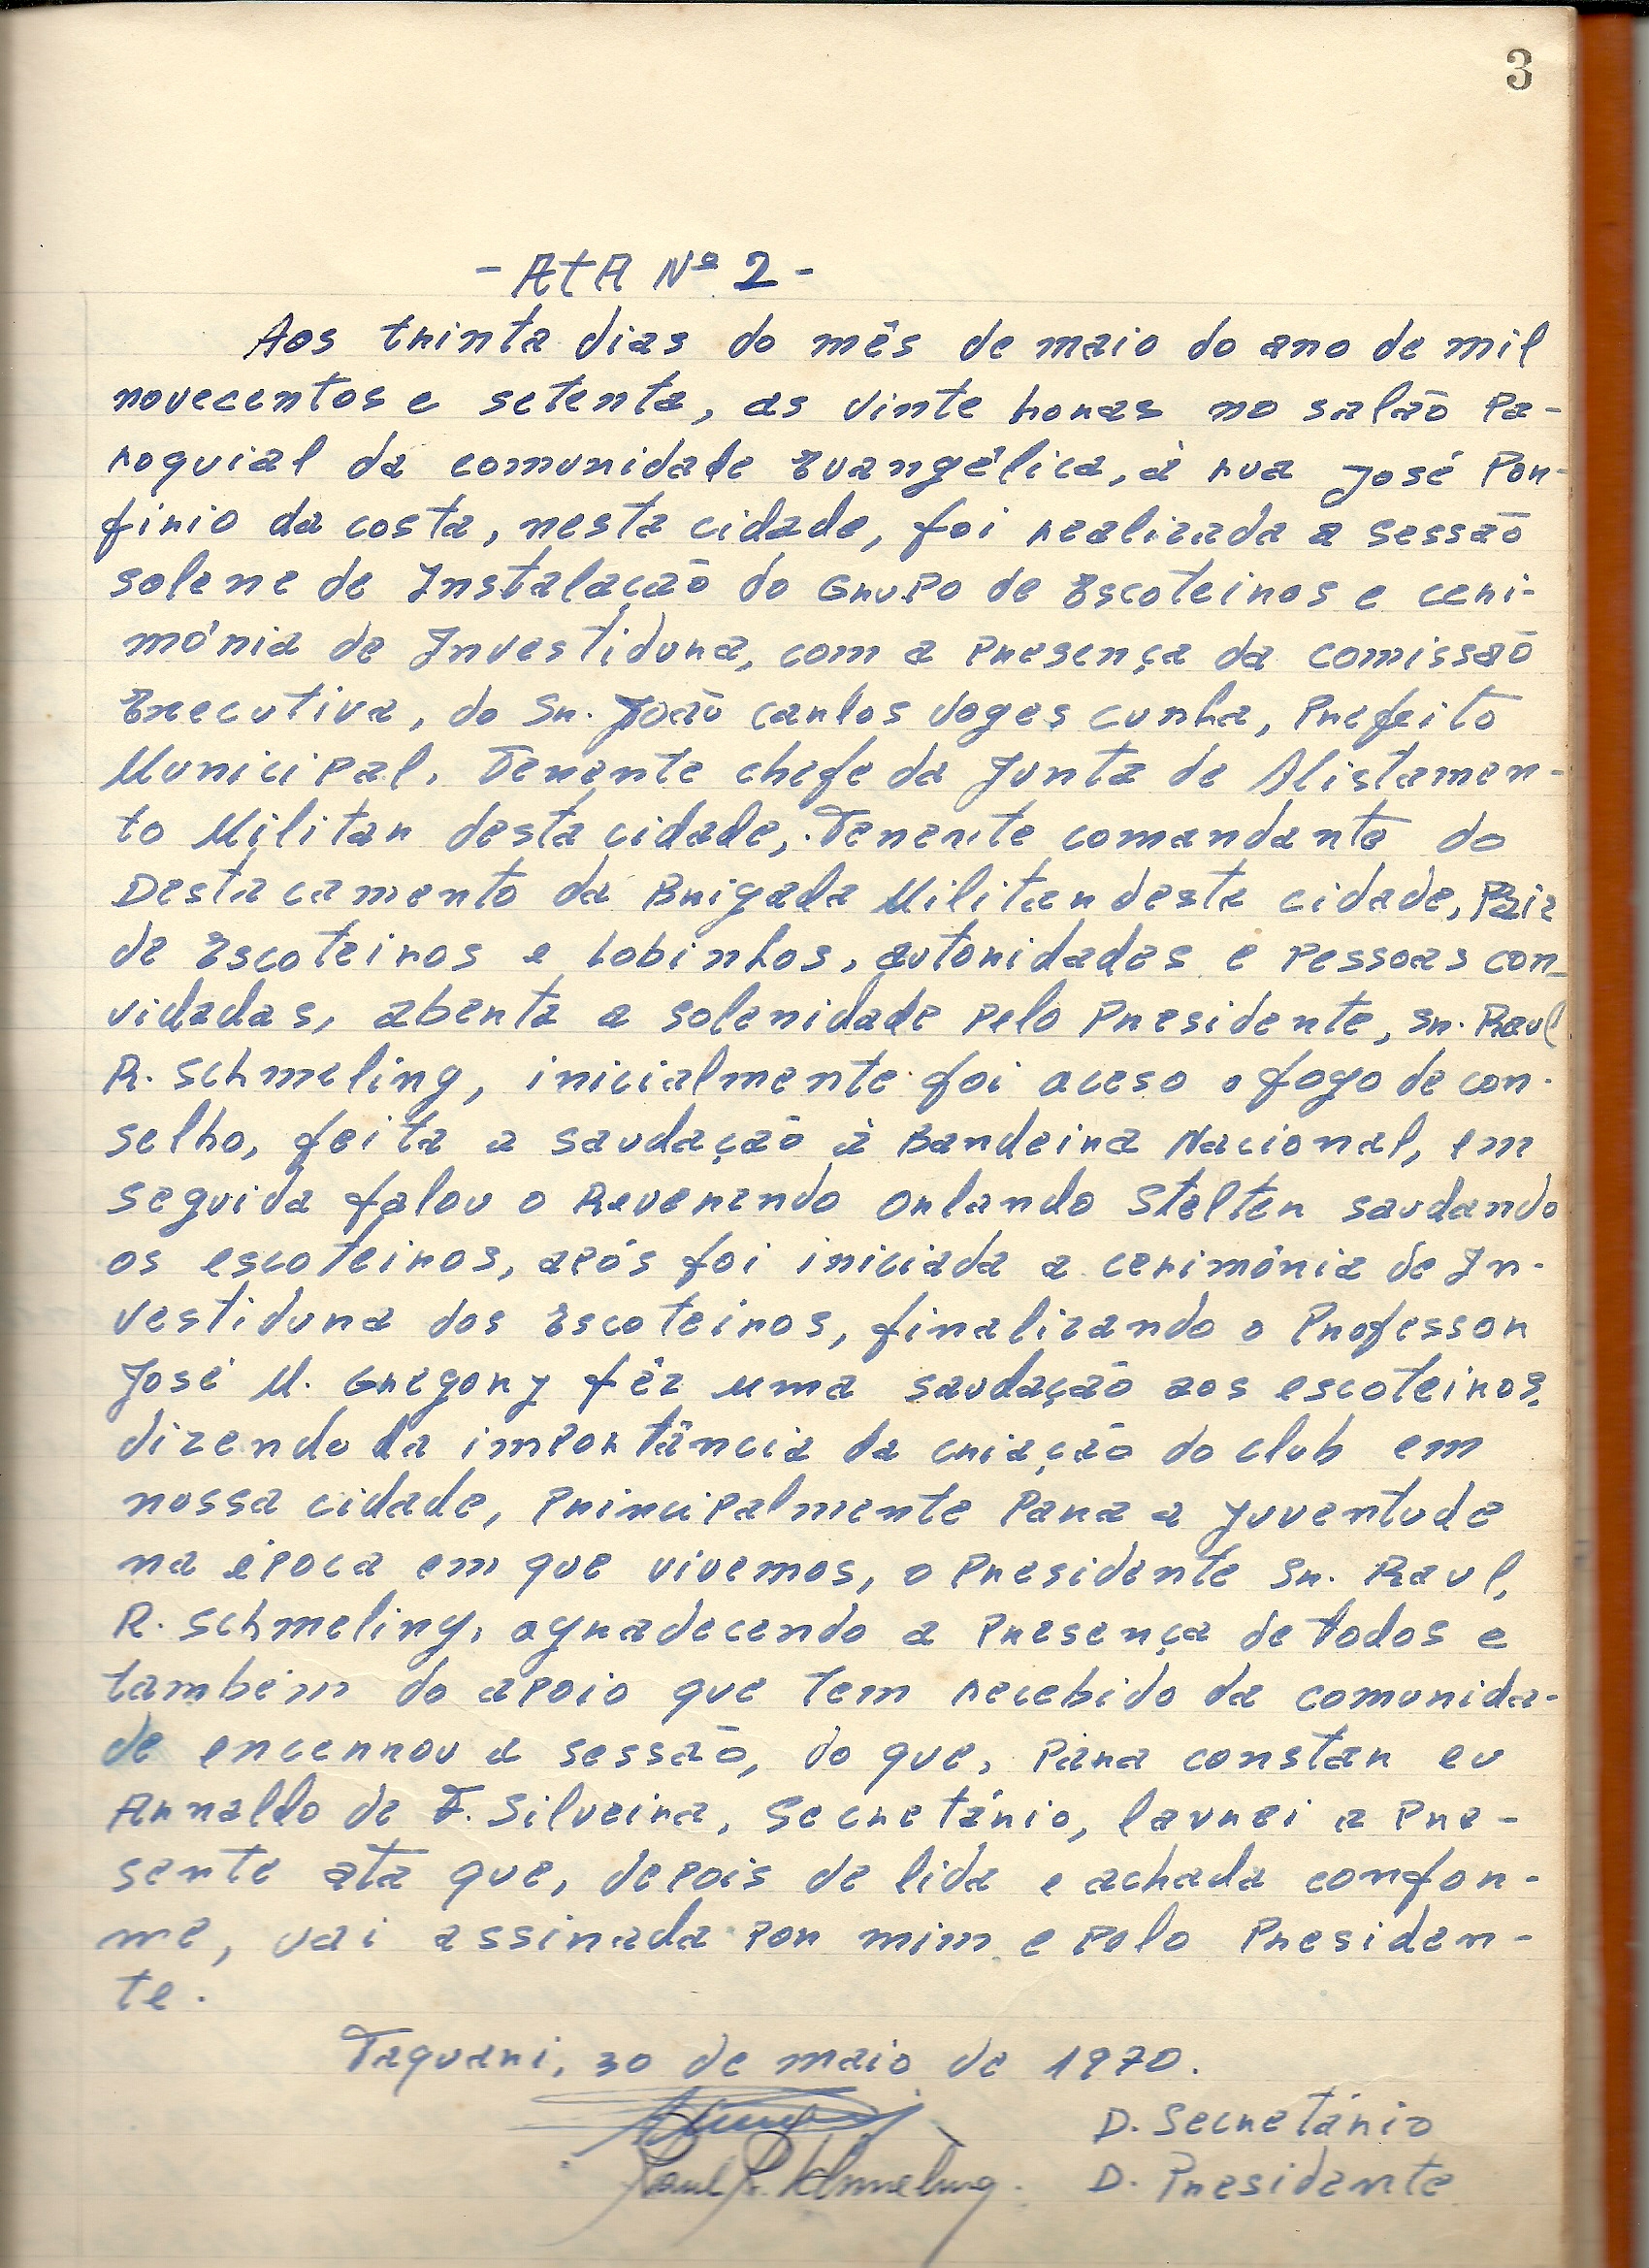 3
- AtA Nº 2 -
Aos trinta dias do mês de maio do ano de mil
novecentos e setenta, as vinte horas no salão Pa-
roquial da comunidade Evangélica, à rua José Por-
firio da costa, nesta cidade, foi realizada a sessão
solene de Instalação do Grupo de Escoteiros e ceri-
mónia de Investidura, com a presença da comissão
Executiva, do Sr. João Carlos Voges Cunha, Prefeito
Municipal, Tenente chefe da Junta de Alistamen-
to Militar desta cidade, Tenente comandante do
Destacamento da Brigada Militar desta cidade, Pais
de Escoteiros e Lobinhos, autoridades e pessoas con-
vidadas, aberta a solenidade pelo Presidente, Sr. Raul
R. Schmeling, inicialmente foi aceso o fogo de con-
selho, feita a saudação à Bandeira Nacional, em
seguida falou o Reverendo Orlando Stelter saudando
os escoteiros, após foi iniciada a cerimônia de In-
vestidura dos Escoteiros, finalizando o Professor
José M. Gregory fêz uma saudação aos escoteiros,
dizendo da importância da criação do club em
nossa cidade, principalmente para a juventude
na época em que vivemos, o Presidente Sr. Raul,
R. Schmeling, agradecendo a presença de todos e
também do apoio que tem recebido da comunida-
de encerrou a sessão, do que, para constar eu
Arnaldo de F. Silveira, Secretário, lavrei a pre-
sente ata que, depois de lida e achada confor-
me, vai assinada por mim e pelo Presiden-
te.
Taquari, 30 de maio de 1970.
D. Secretário
Raul R. Schmeling. D. Presidente